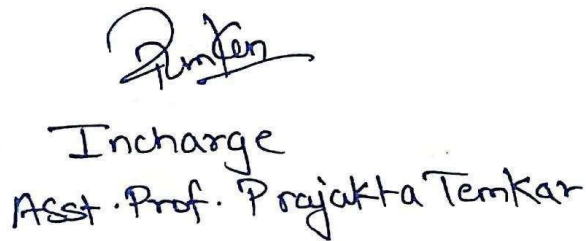 Incharge
Asst. Prof. Prajakta Temkar